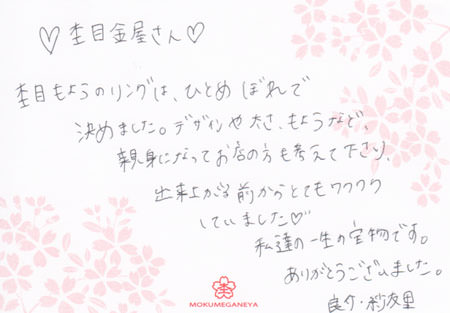 ♡杢目金屋さん♡
杢目もようのリングは、ひとめぼれで
決めました。デザインや太さ、もようなど、
親身になってお店の方も考えて下さり、
出来上がる前からとてもワクワク
していました♡
私達の一生の宝物です。
ありがとうございました。
良介・紗友里
MOKUMEGANEYA